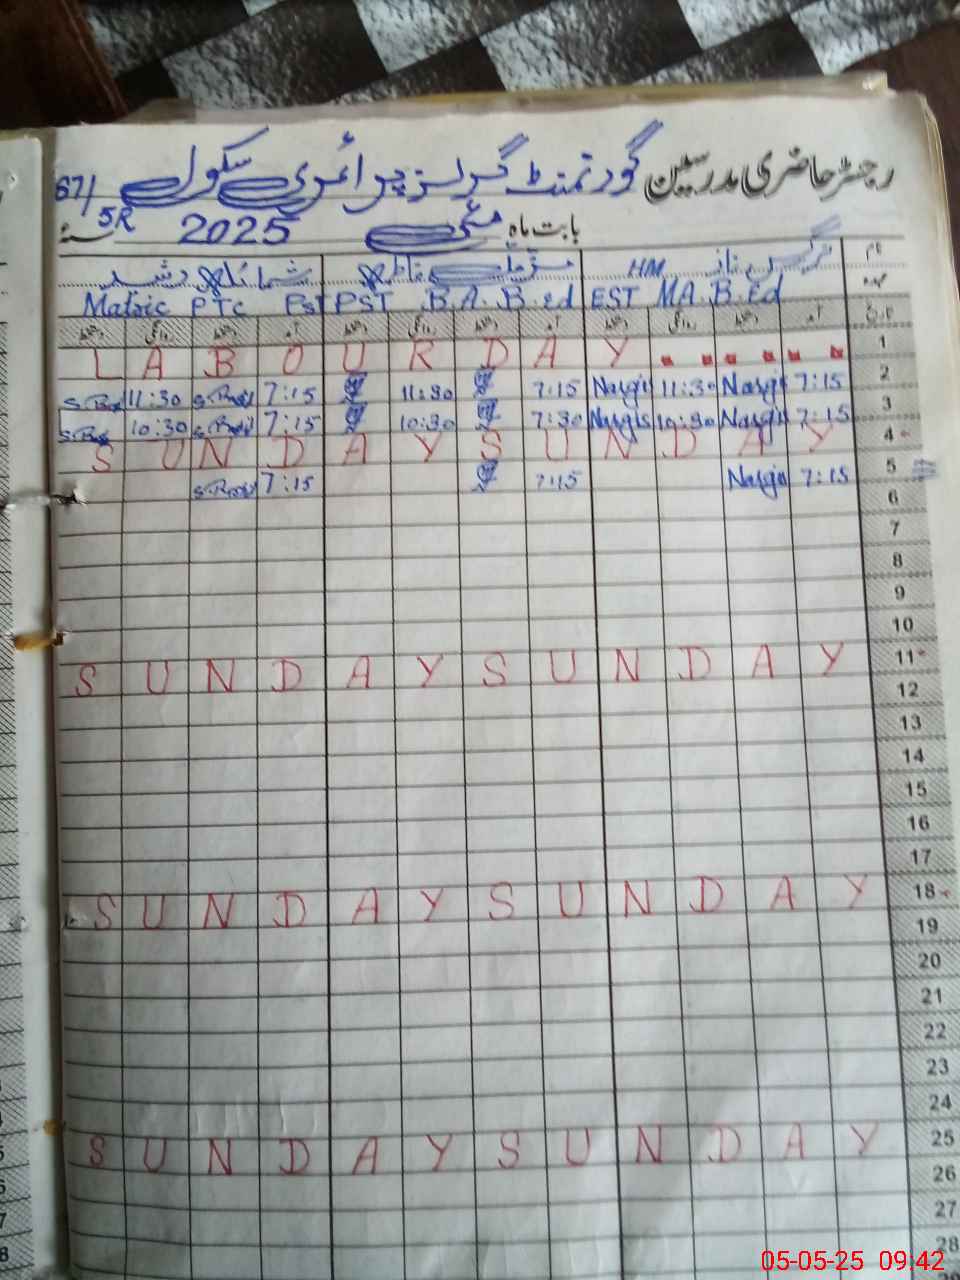 رجسٹر حاضری مدرسین گورنمنٹ گرلز پرائمری سکول 67/5R
بابت ماہ مئی 2025 سنہ
نام نرگس ناز HM فاطمہ شمائلہ رشید
عہدہ EST MA. B.Ed PST B.A. B.ed Matric PTC Pst
تاریخ آمد دستخط روانگی دستخط آمد دستخط روانگی دستخط آمد دستخط روانگی دستخط
1 LABOUR DAY
2 7:15 Nargis 11:30 Nargis 7:15 11:30 7:15 11:30
3 7:15 Nargis 10:30 Nargis 7:30 10:30 7:15 10:30
4 SUNDAY SUNDAY
5 7:15 Nargis 7:15 7:15
6
7
8
9
10
11 SUNDAY SUNDAY
12
13
14
15
16
17
18 SUNDAY SUNDAY
19
20
21
22
23
24
25 SUNDAY SUNDAY
26
27
28
05-05-25 09:42